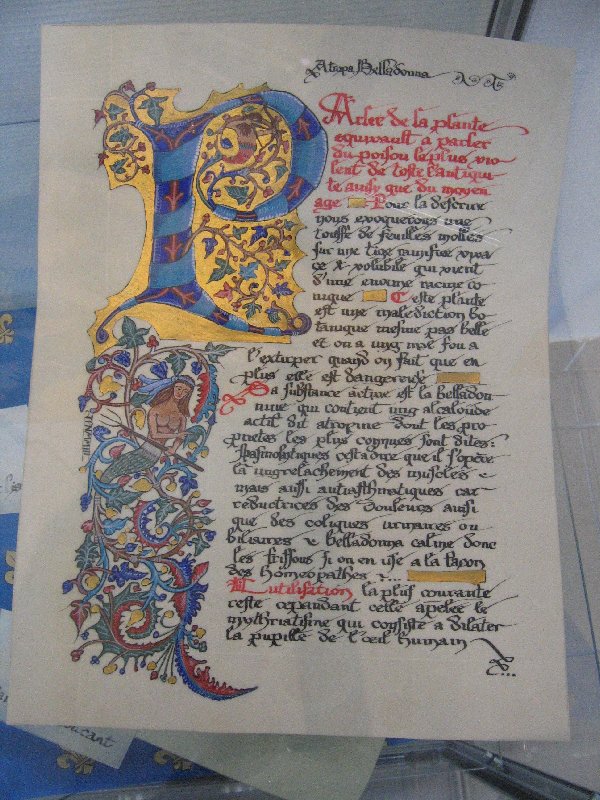 Atropa Belladonna
Parler de la plante
equivault a parler
du poison le plus vio
lent de toste l'antiqui
te ausy que du moyen
age Pour la descrire
nous evoquerons une
touffe de feuilles molles
sur une tige ramifiee
ce & volubile qui vient
d'une enorme racine co
nique Ceste plante
est une malediction bo
tanique mesme pas belle
et on a ung mye fou a
l'extirper quand on sait que en
plus elle est dangereuse
Sa substance active est la belladon
nine qui contient ung alcaloide
actif dit atropine dont les pro
prietes les plus connues sont dites:
spasmolytiques cesta dire que il s'opere
la ung relachement des muscles &
mais aussi antiasthmatiques car
reductrices des douleurs ausi
que des coliques urinaires ou
biliaires & belladonna calme donc
les frissons si on en use a la façon
des homeopathes
L'utilisation la plus courante
reste cependant celle apelee le
mythriatisme qui consiste a dilater
la pupille de l'œil humain
ucant